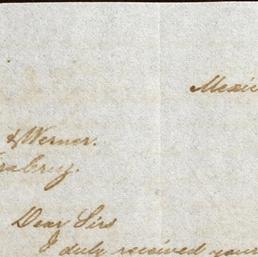 Mexic
& Werner.
racruz.
Dear Sirs
I duly received your